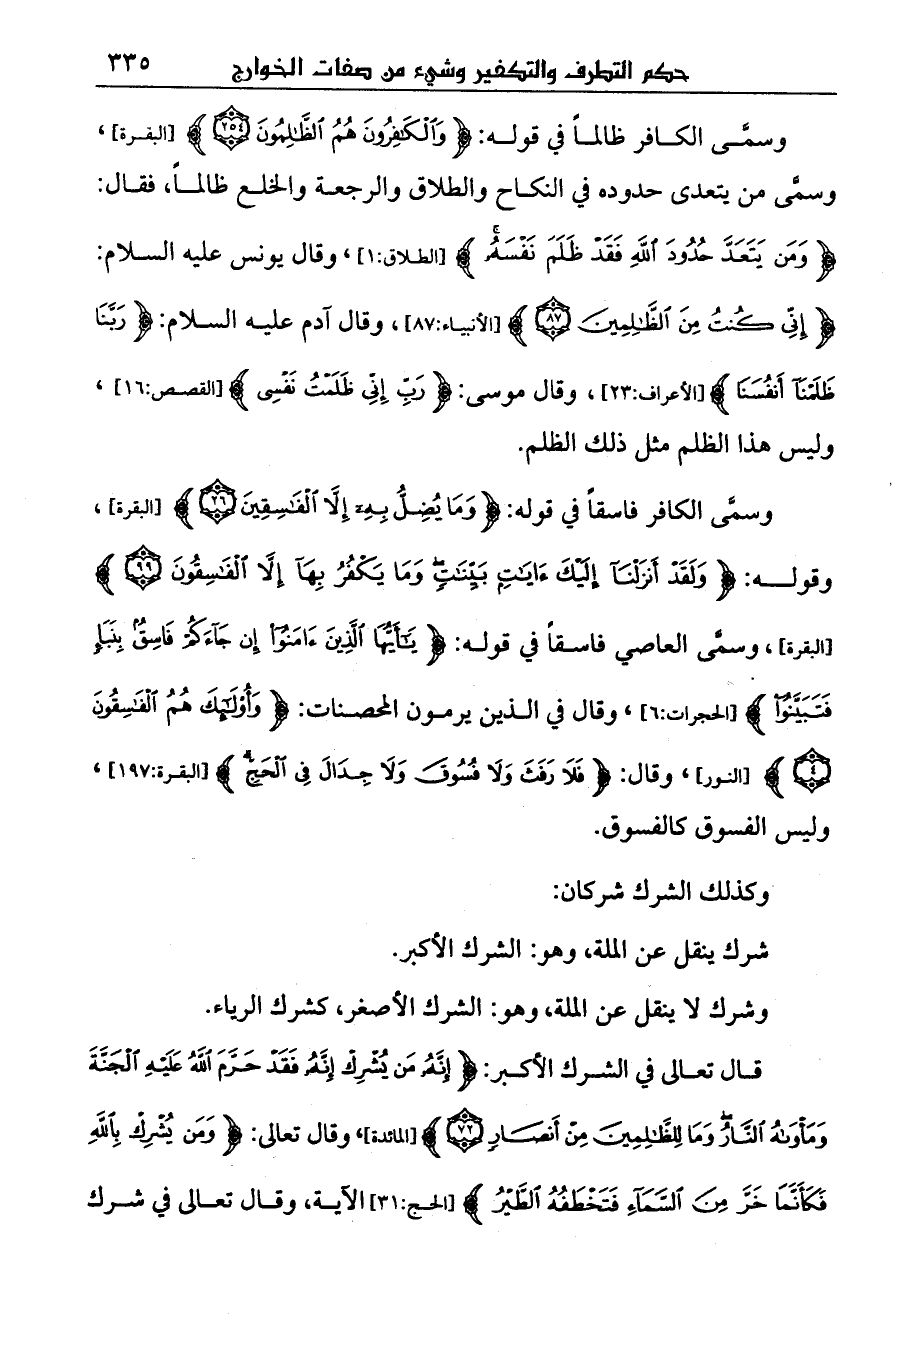 حكم التطرف والتكفير وشيء من صفات الخوارج ٣٣٥
وسمَّى الكافر ظالماً في قوله: ﴿ وَٱلۡكَٰفِرُونَ هُمُ ٱلظَّٰلِمُونَ ٢٥٤ ﴾ [البقرة] ،
وسمَّى من يتعدى حدوده في النكاح والطلاق والرجعة والخلع ظالماً، فقال:
﴿ وَمَن يَتَعَدَّ حُدُودَ ٱللَّهِ فَقَدۡ ظَلَمَ نَفۡسَهُۥۚ ﴾ [الطلاق:١] ، وقال يونس عليه السلام:
﴿ إِنِّي كُنتُ مِنَ ٱلظَّٰلِمِينَ ٨٧ ﴾ [الأنبياء:٨٧] ، وقال آدم عليه السلام: ﴿ رَبَّنَا
ظَلَمۡنَآ أَنفُسَنَا ﴾ [الأعراف:٢٣] ، وقال موسى: ﴿ رَبِّ إِنِّي ظَلَمۡتُ نَفۡسِي ﴾ [القصص:١٦] ،
وليس هذا الظلم مثل ذلك الظلم.
وسمَّى الكافر فاسقاً في قوله: ﴿ وَمَا يُضِلُّ بِهِۦٓ إِلَّا ٱلۡفَٰسِقِينَ ٢٦ ﴾ [البقرة] ،
وقوله: ﴿ وَلَقَدۡ أَنزَلۡنَآ إِلَيۡكَ ءَايَٰتِۭ بَيِّنَٰتٖۖ وَمَا يَكۡفُرُ بِهَآ إِلَّا ٱلۡفَٰسِقُونَ ٩٩ ﴾
[البقرة] ، وسمَّى العاصي فاسقاً في قوله: ﴿ يَٰٓأَيُّهَا ٱلَّذِينَ ءَامَنُوٓاْ إِن جَآءَكُمۡ فَاسِقُۢ بِنَبَإٖ
فَتَبَيَّنُوٓاْ ﴾ [الحجرات:٦] ، وقال في الذين يرمون المحصنات: ﴿ وَأُوْلَٰٓئِكَ هُمُ ٱلۡفَٰسِقُونَ
٤ ﴾ [النور] ، وقال: ﴿ فَلَا رَفَثَ وَلَا فُسُوقَ وَلَا جِدَالَ فِي ٱلۡحَجِّۗ ﴾ [البقرة:١٩٧] ،
وليس الفسوق كالفسوق.
وكذلك الشرك شركان:
شرك ينقل عن الملة، وهو: الشرك الأكبر.
وشرك لا ينقل عن الملة، وهو: الشرك الأصغر، كشرك الرياء.
قال تعالى في الشرك الأكبر: ﴿ إِنَّهُۥ مَن يُشۡرِكۡ إِنَّهُۥ فَقَدۡ حَرَّمَ ٱللَّهُ عَلَيۡهِ ٱلۡجَنَّةَ
وَمَأۡوَىٰهُ ٱلنَّارُۖ وَمَا لِلظَّٰلِمِينَ مِنۡ أَنصَارٖ ٧٢ ﴾ [المائدة]، وقال تعالى: ﴿ وَمَن يُشۡرِكۡ بِٱللَّهِ
فَكَأَنَّمَا خَرَّ مِنَ ٱلسَّمَآءِ فَتَخۡطَفُهُ ٱلطَّيۡرُ ﴾ [الحج:٣١] الآية، وقال تعالى في شرك